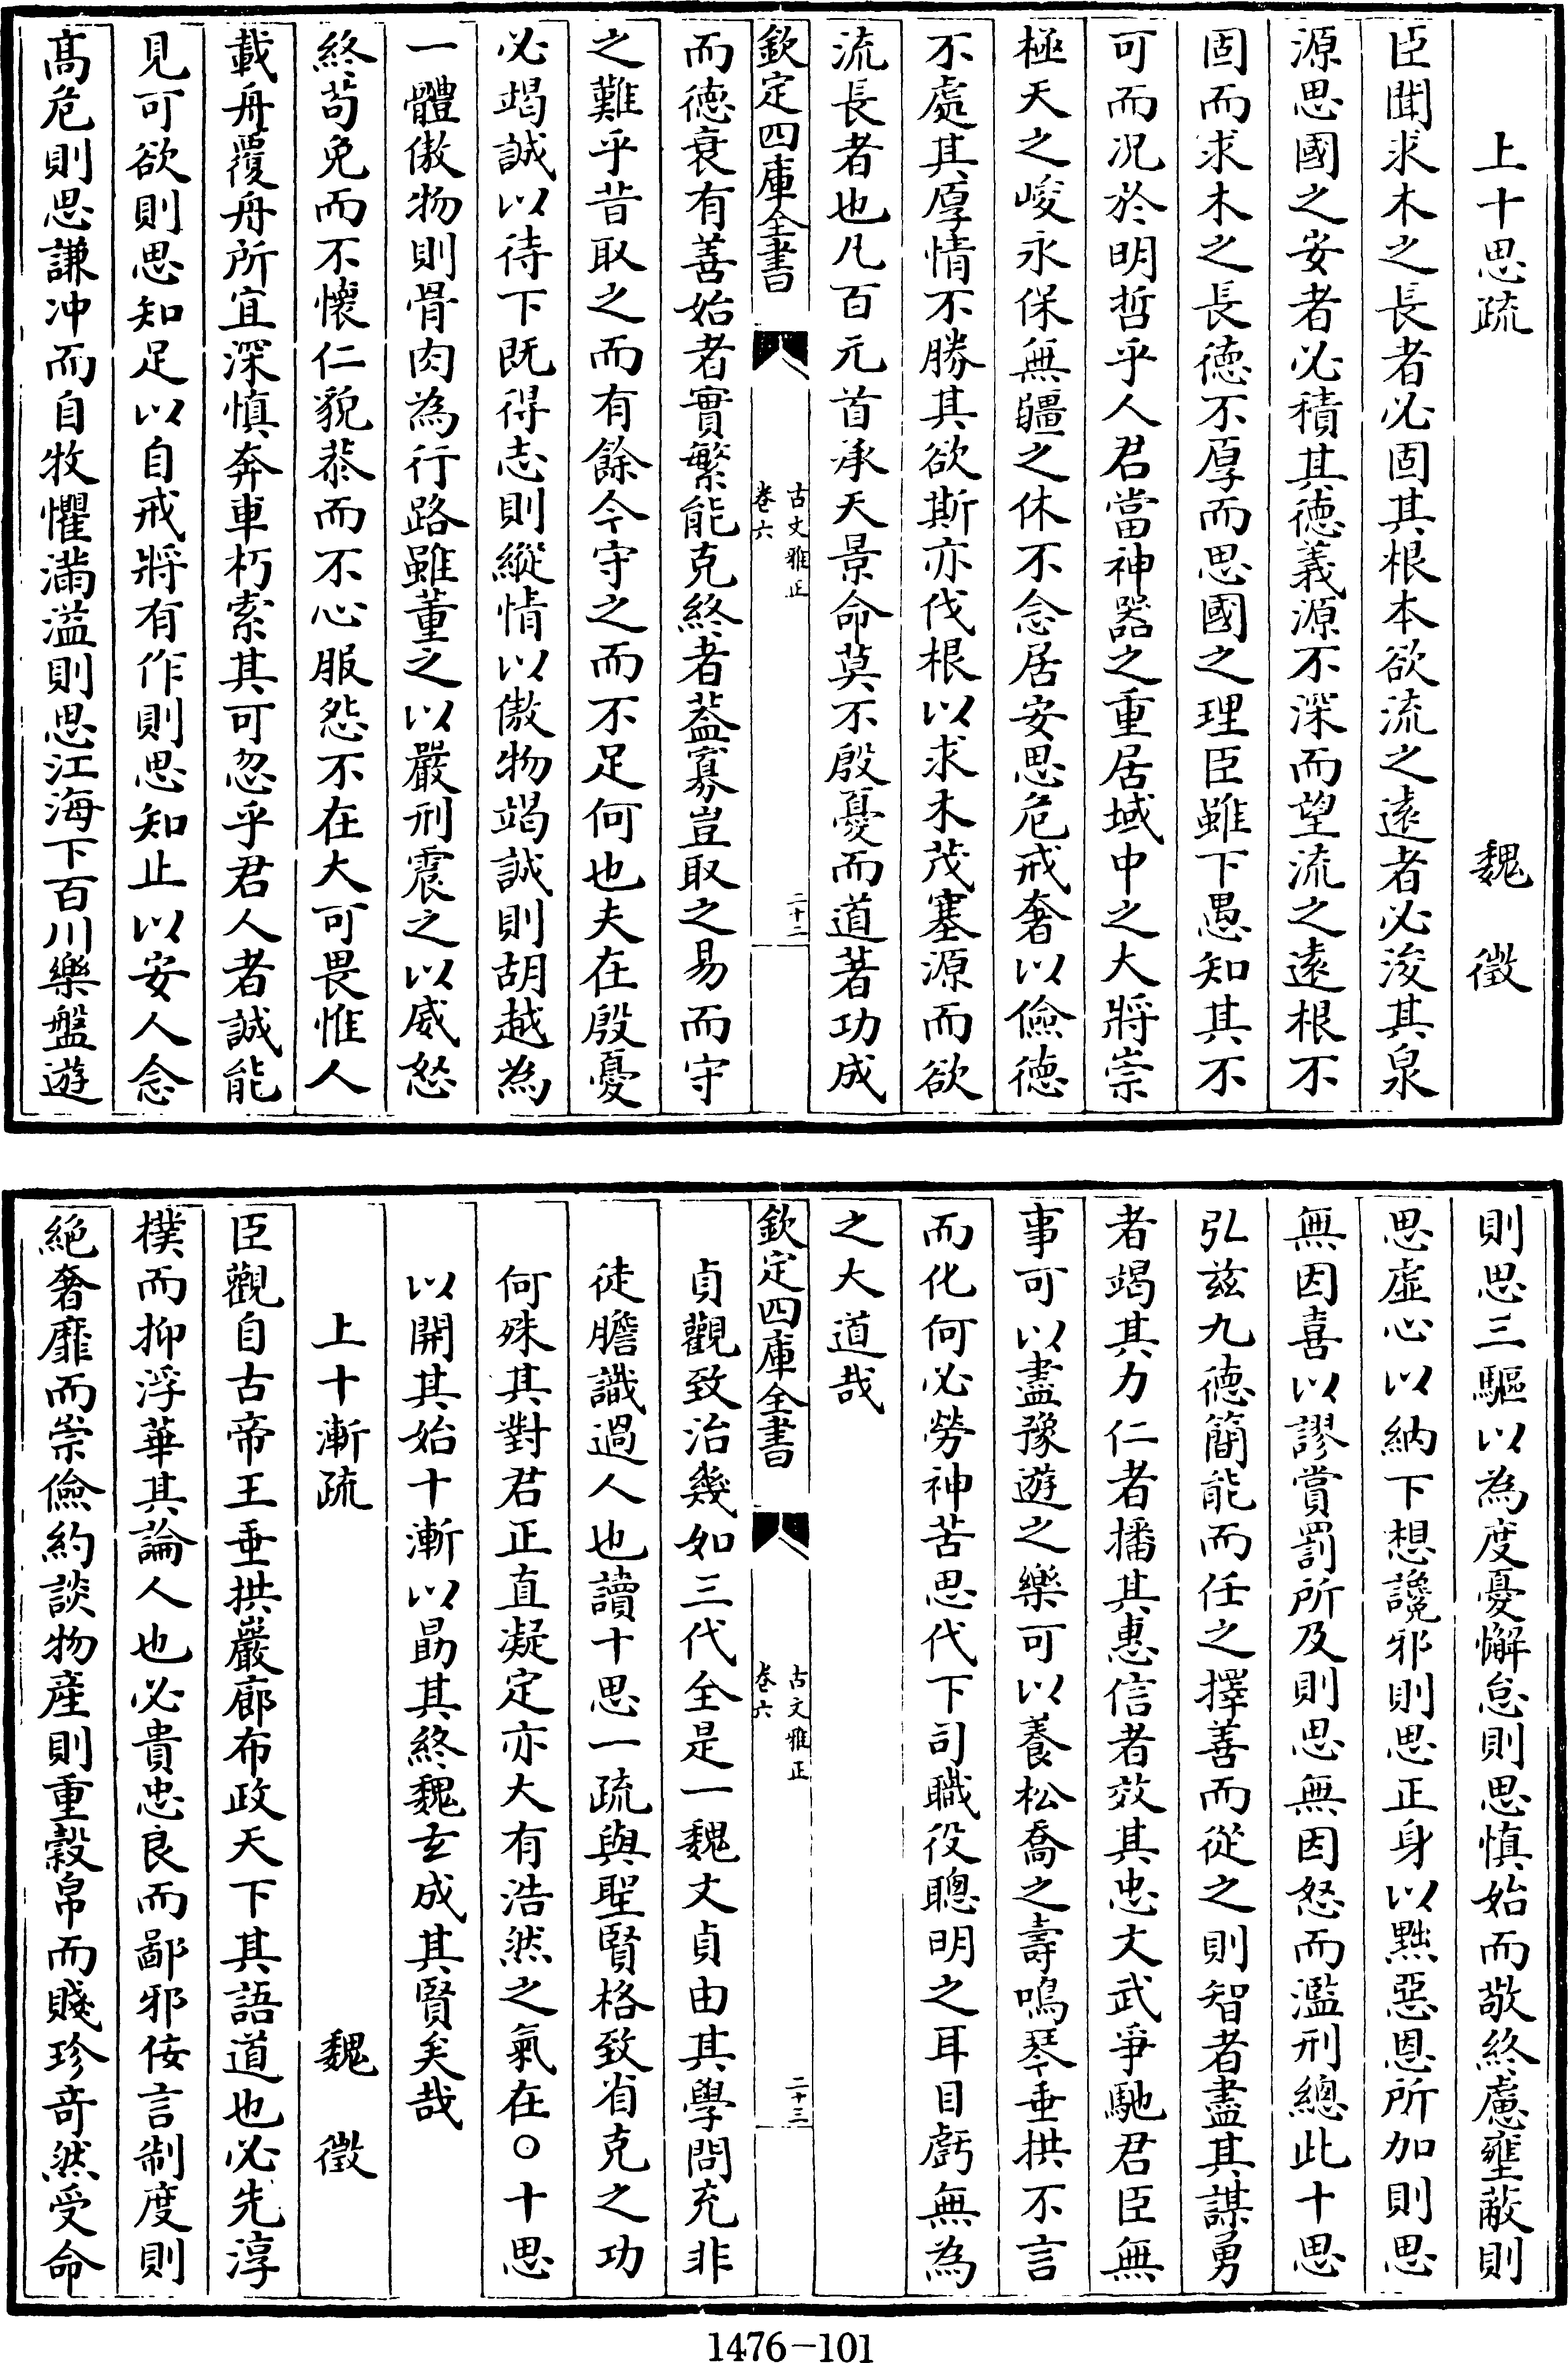 上十思疏 魏徵
臣聞求木之長者必固其根本欲流之遠者必浚其泉
源思國之安者必積其德義源不深而望流之遠根不
固而求木之長德不厚而思國之理臣雖下愚知其不
可而況於明哲乎人君當神器之重居域中之大將崇
極天之峻永保無疆之休不念居安思危戒奢以儉德
不處其厚情不勝其欲斯亦伐根以求木茂塞源而欲
流長者也凡百元首承天景命莫不殷憂而道著功成
欽定四庫全書 古文雅正 卷六 二十二
而德衰有善始者實繁能克終者蓋寡豈取之易而守
之難乎昔取之而有餘今守之而不足何也夫在殷憂
必竭誠以待下既得志則縱情以傲物竭誠則胡越為
一體傲物則骨肉為行路雖董之以嚴刑震之以威怒
終苟免而不懷仁貌恭而不心服怨不在大可畏惟人
載舟覆舟所宜深慎奔車朽索其可忽乎君人者誠能
見可欲則思知足以自戒將有作則思知止以安人念
高危則思謙冲而自牧懼滿溢則思江海下百川樂盤遊
則思三驅以為度憂懈怠則思慎始而敬終慮壅蔽則
思虛心以納下想讒邪則思正身以黜惡恩所加則思
無因喜以謬賞罰所及則思無因怒而濫刑總此十思
弘茲九德簡能而任之擇善而從之則智者盡其謀勇
者竭其力仁者播其惠信者效其忠文武爭馳君臣無
事可以盡豫遊之樂可以養松喬之壽鳴琴垂拱不言
而化何必勞神苦思代下司職役聰明之耳目虧無為
之大道哉
欽定四庫全書 古文雅正 卷六 二十三
貞觀致治幾如三代全是一魏文貞由其學問充非
徒膽識過人也讀十思一疏與聖賢格致省克之功
何殊其對君正直凝定亦大有浩然之氣在○十思
以開其始十漸以勗其終魏玄成其賢矣哉
上十漸疏 魏徵
臣觀自古帝王垂拱巖廊布政天下其語道也必先淳
樸而抑浮華其論人也必貴忠良而鄙邪佞言制度則
絕奢靡而崇儉約談物產則重穀帛而賤珍奇然受命
1476-101